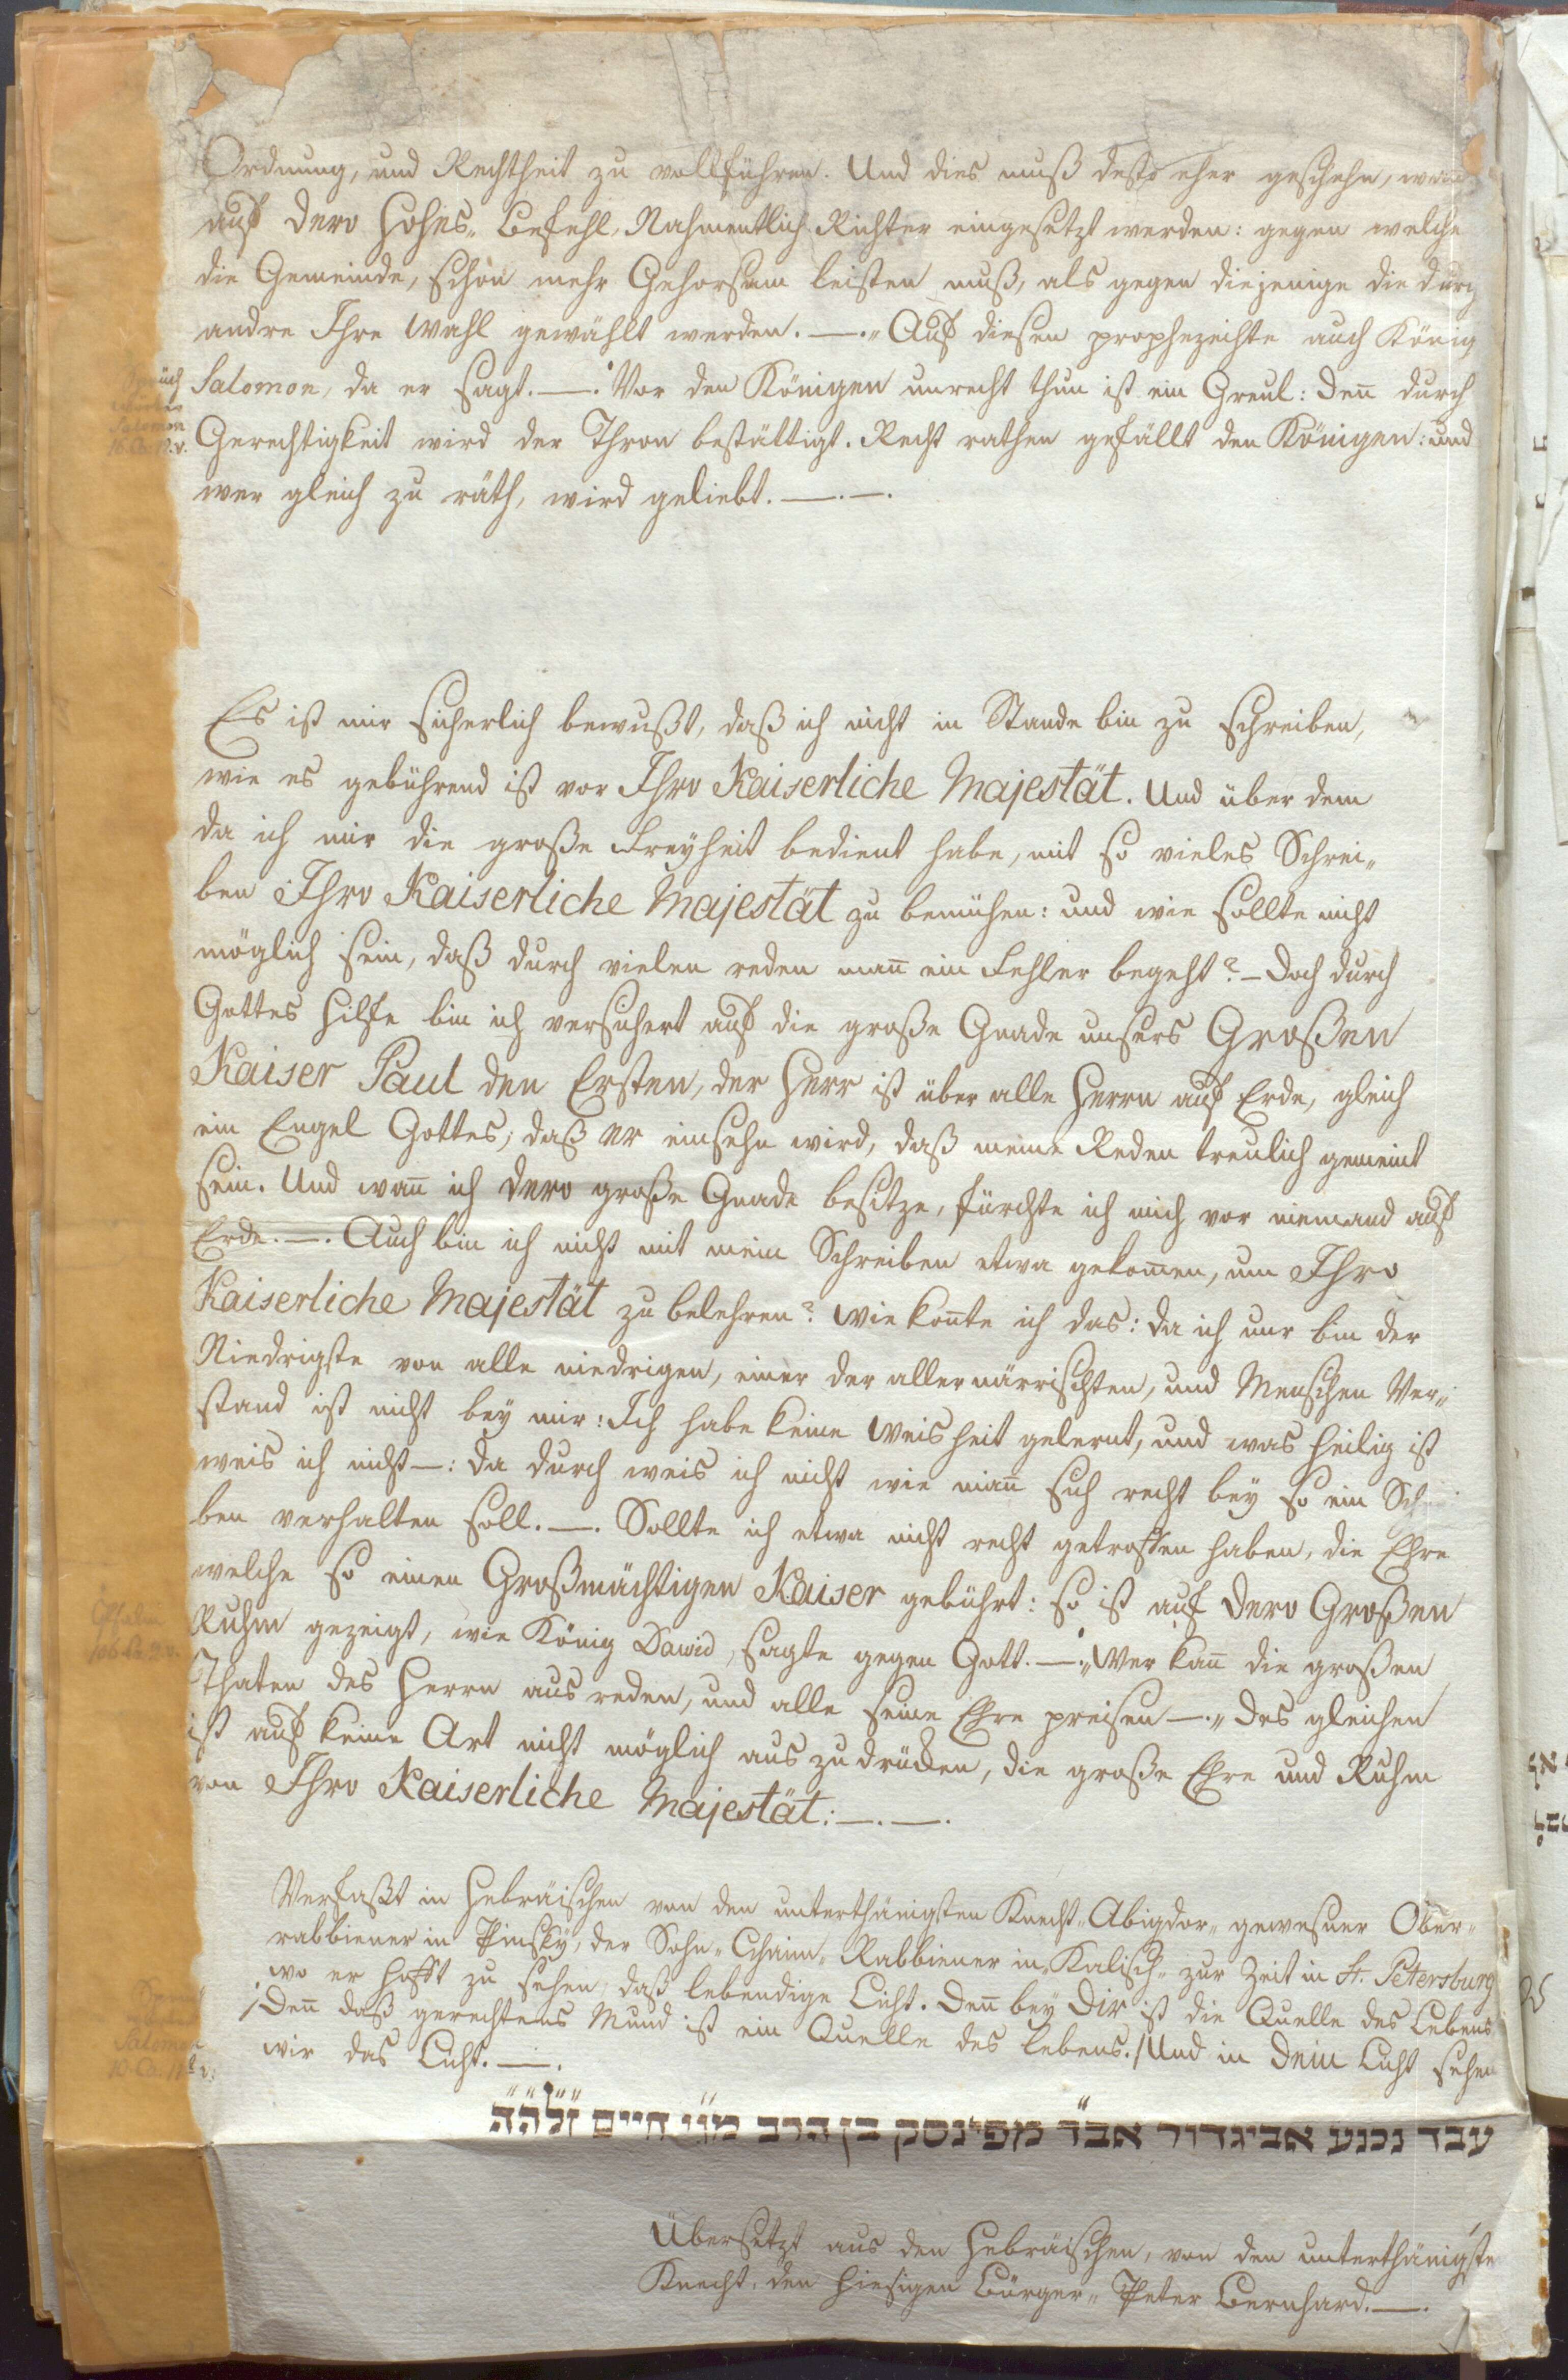 Ordnung, und Rechtheit zu vollführen. Und dies muß desto eher geschehn, wan
auf dero Hohes„ Befehl, Nahmentlich Richter eingesetzt werden: gegen welche
die Gemeinde, schon mehr Gehorsam leisten muß, als gegen diejenige die durch
andre Ihre Wahl gewählt werden. —.„ Auf diesen prophezeihte auch König
Salomon, da er sagt. —." Vor den Königen unrecht thun ist ein Greul: deñ durch
Gerechtigkeit wird der Thron bestättigt. Recht rathen gefällt den Königen: und
wer gleich zu räth, wird geliebt. —.—.
Sprüch
Salomon
16. Ca. 12. v.
Es ist mir sicherlich bewußt, daß ich nicht in Stande bin zu schreiben,
wie es gebührend ist vor Ihro Kaiserliche Majestät. Und über dem
da ich mir die große Freyheit bedient habe, mit so vieles Schrei„
ben Ihro Kaiserliche Majestät zu bemühen: und wie sollte nicht
möglich sein, daß durch vielen reden mañ ein Fehler begeht? – Doch durch
Gottes Hilfe bin ich versichert auf die große Gnade unsers Großen
Kaiser Paul den Ersten, der Herr ist über alle Herrn auf Erde, gleich
ein Engel Gottes; daß er einsehn wird, daß meine Reden treulich gemeint
sein. Und wañ ich dero große Gnade besitze, fürchte ich mich vor niemand auf
Erde. —. Auch bin ich nicht mit mein Schreiben etwa gekom̄en, um Ihro
Kaiserliche Majestät zu belehren? Wie koñte ich das: da ich nur bin der
Niedrigste von alle niedrigen, einer der allernärrischten, und Menschen Ver„
stand ist nicht bey mir: Ich habe keine Weisheit gelernt, und was heilig ist
weis ich nicht —: da durch weis ich nicht wie mañ sich recht bey so ein Schrei
ben verhalten soll. —. Sollte ich etwa nicht recht getroffen haben, die Ehre
welche so einen Großmächtigen Kaiser gebührt: so ist auf dero Großen
Ruhm gezeigt, wie König Dawid, sagte gegen Gott. —." Wer kañ die großen
Thaten des Herrn aus reden, und alle seine Ehre preisen —.„ des gleichen
ist auf keine Art nicht möglich aus zu drücken, die große Ehre und Ruhm
von Ihro Kaiserliche Majestät: —. —.
Psalm
106. Ca. 2. v.
Verfaßt in Hebräischen von den unterthänigsten Knecht „Abigdor„ gewesner Ober„
rabbiener in Pinsky, der Sohn „Cchaim„ Rabbiener in „Kalisch„ zur Zeit in St. Petersburg
wo er hofft zu sehen, daß lebendige Licht. Deñ bey Dir ist die Quelle des Lebens
/Deñ daß gerechtens Mund ist ein Quelle des lebens./ Und in Dein Licht sehen
wir das Licht. —.
Salomon
10. Ca. 11. v:
עבד נכנע אביגדור אב״ד מפינסק בן הרב מו״ חיים זללה״ה
Übersetzt aus den Hebräischen, von den unterthänigste
Knecht, den hiesigen Bürger „ Peter Bernhard. —.